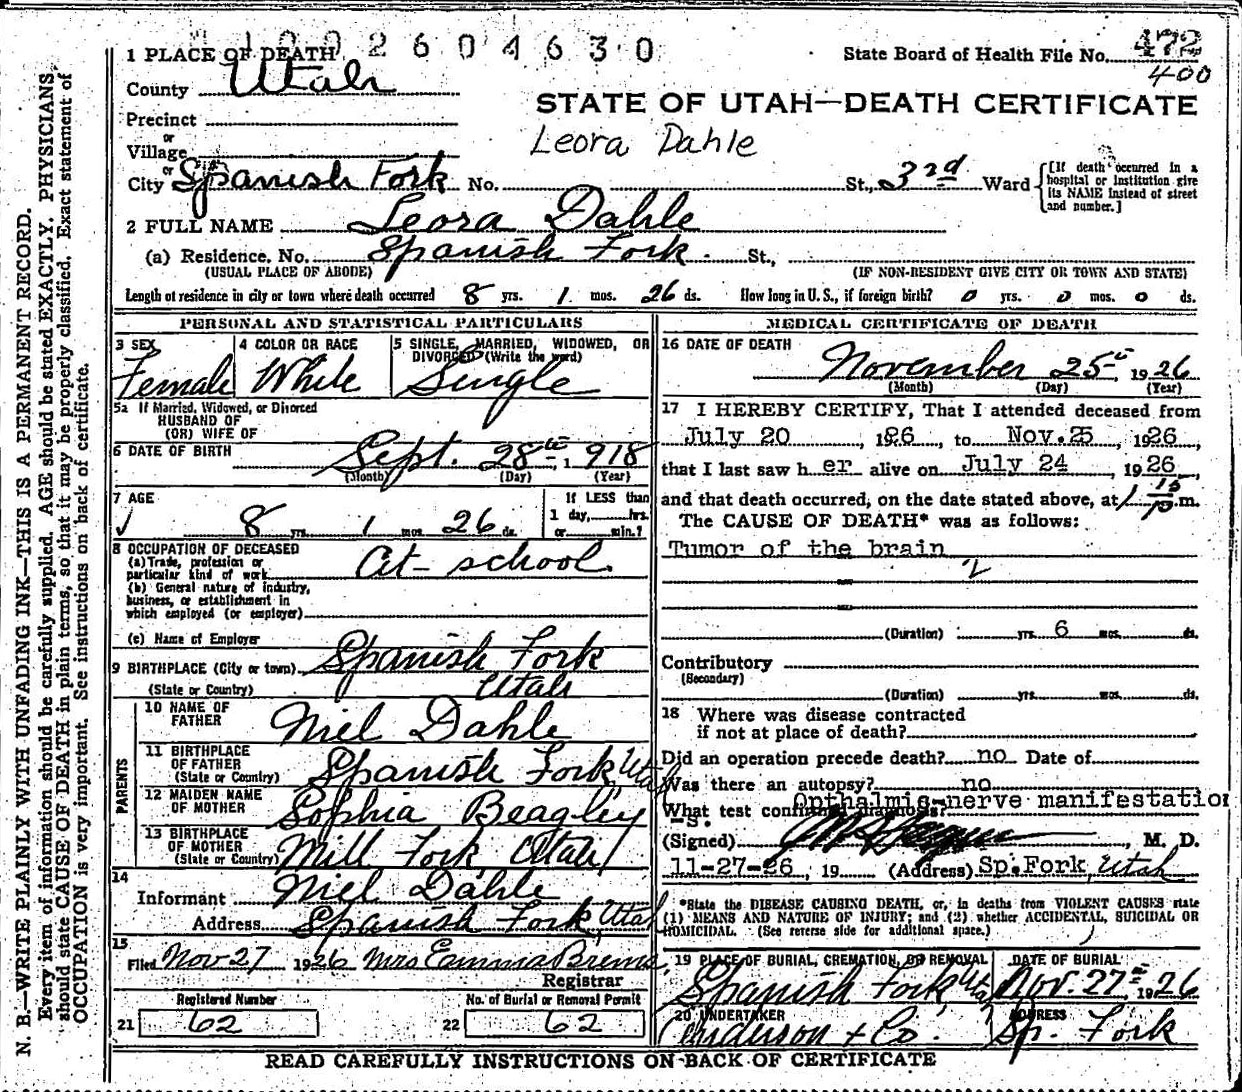 1 0 0 2 6 0 4 6 3 0
1 PLACE OF DEATH
State Board of Health File No. 472
400
County Utah
STATE OF UTAH—DEATH CERTIFICATE
Precinct
or
Village
Leora Dahle
or
City Spanish Fork No. St., 3rd Ward
[If death occurred in a hospital or institution give its NAME instead of street and number.]
2 FULL NAME Leora Dahle
(a) Residence. No. Spanish Fork. St.,
(USUAL PLACE OF ABODE) (IF NON-RESIDENT GIVE CITY OR TOWN AND STATE)
Length of residence in city or town where death occurred 8 yrs. 1 mos. 26 ds. How long in U. S., if foreign birth? 0 yrs. 0 mos. 0 ds.
PERSONAL AND STATISTICAL PARTICULARS
3 SEX
Female
4 COLOR OR RACE
White
5 SINGLE, MARRIED, WIDOWED, OR
DIVORCED (Write the word)
Single
5a If Married, Widowed, or Divorced
HUSBAND OF
(OR) WIFE OF
6 DATE OF BIRTH Sept. 28th, 1918
(Month) (Day) (Year)
7 AGE
8 yrs. 1 mos. 26 ds.
If LESS than
1 day, hrs.
or min.?
8 OCCUPATION OF DECEASED
(a) Trade, profession or
particular kind of work At school
(b) General nature of industry,
business, or establishment in
which employed (or employer)
(c) Name of Employer
9 BIRTHPLACE (City or town) Spanish Fork
(State or Country) Utah
PARENTS
10 NAME OF
FATHER Niel Dahle
11 BIRTHPLACE
OF FATHER
(State or Country) Spanish Fork, Utah
12 MAIDEN NAME
OF MOTHER Sophia Beagley
13 BIRTHPLACE
OF MOTHER
(State or Country) Mill Fork, Utah
14
Informant Niel Dahle
Address Spanish Fork, Utah
15
Filed Nov 27 1926 Mrs Emma Brems
Registrar
Registered Number
21 62
No. of Burial or Removal Permit
22 62
MEDICAL CERTIFICATE OF DEATH
16 DATE OF DEATH
November 25th, 1926
(Month) (Day) (Year)
17 I HEREBY CERTIFY, That I attended deceased from
July 20, 1926, to Nov. 25, 1926,
that I last saw her alive on July 24, 1926,
and that death occurred, on the date stated above, at 1 15 m.
The CAUSE OF DEATH* was as follows:
Tumor of the brain
2
(Duration) yrs. 6 mos. ds.
Contributory
(Secondary)
(Duration) yrs. mos. ds.
18 Where was disease contracted
if not at place of death?
Did an operation precede death? no Date of
Was there an autopsy? no
What test confirmed diagnosis? Opthalmic nerve manifestation
-s.
(Signed) , M. D.
11-27-26, 19 (Address) Sp. Fork, Utah
*State the DISEASE CAUSING DEATH, or, in deaths from VIOLENT CAUSES state
(1) MEANS AND NATURE OF INJURY; and (2) whether ACCIDENTAL, SUICIDAL OR
HOMICIDAL. (See reverse side for additional space.)
19 PLACE OF BURIAL, CREMATION, OR REMOVAL
Spanish Fork Uta
DATE OF BURIAL
Nov. 27th, 1926
20 UNDERTAKER
Anderson + Co.
ADDRESS
Sp. Fork
READ CAREFULLY INSTRUCTIONS ON BACK OF CERTIFICATE
N. B.—WRITE PLAINLY WITH UNFADING INK—THIS IS A PERMANENT RECORD.
Every item of information should be carefully supplied. AGE should be stated EXACTLY. PHYSICIANS
should state CAUSE OF DEATH in plain terms, so that it may be properly classified. Exact statement of
OCCUPATION is very important. See instructions on back of certificate.